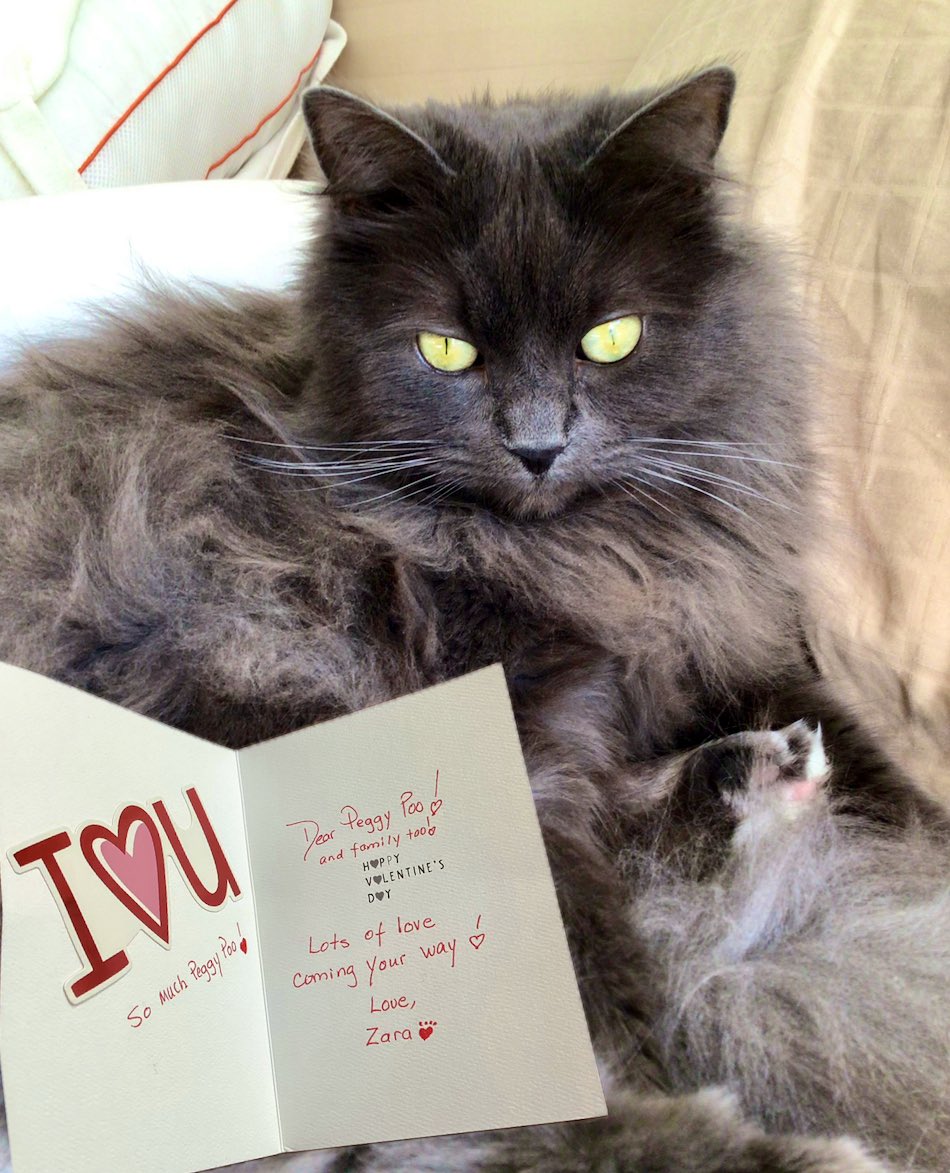 I ♥ U
So much Peggy Poo!
Dear Peggy Poo!
and family too!
HAPPY
VALENTINE'S
DAY
Lots of love
coming your way!
Love,
Zara